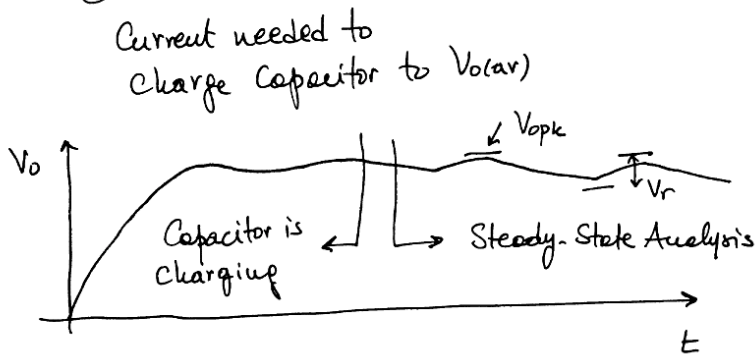 Current needed to
Charge Capacitor to Vo(av)
Vo
Vopk
Vr
Capacitor is
charging
Steady-State Analysis
t